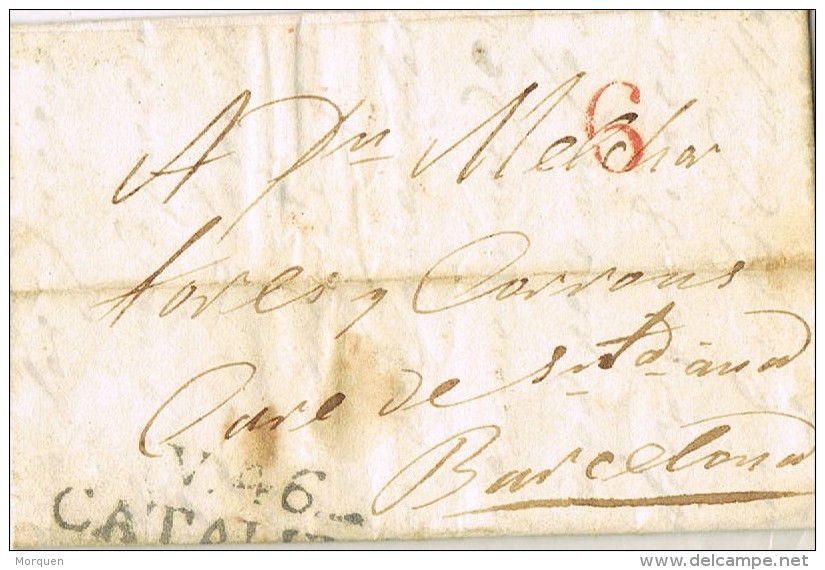 6
A Dn Melchor
fores y Corrons
Care de Snta ana
Barcelona
V.46
CATALU
Morquen
delcampe.net